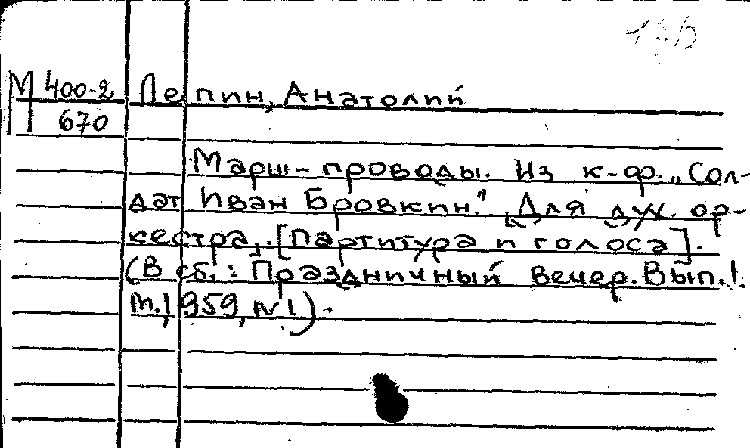 М 400-2 Лепин, Анатолий
670
Марш-проводы. Из к-ф. „Сол-
дат Иван Бровкин." Для дух. ор-
кестра. [Партитура и голоса].
(В сб.: Праздничный вечер. Вып.1.
М., 1959, N 1).